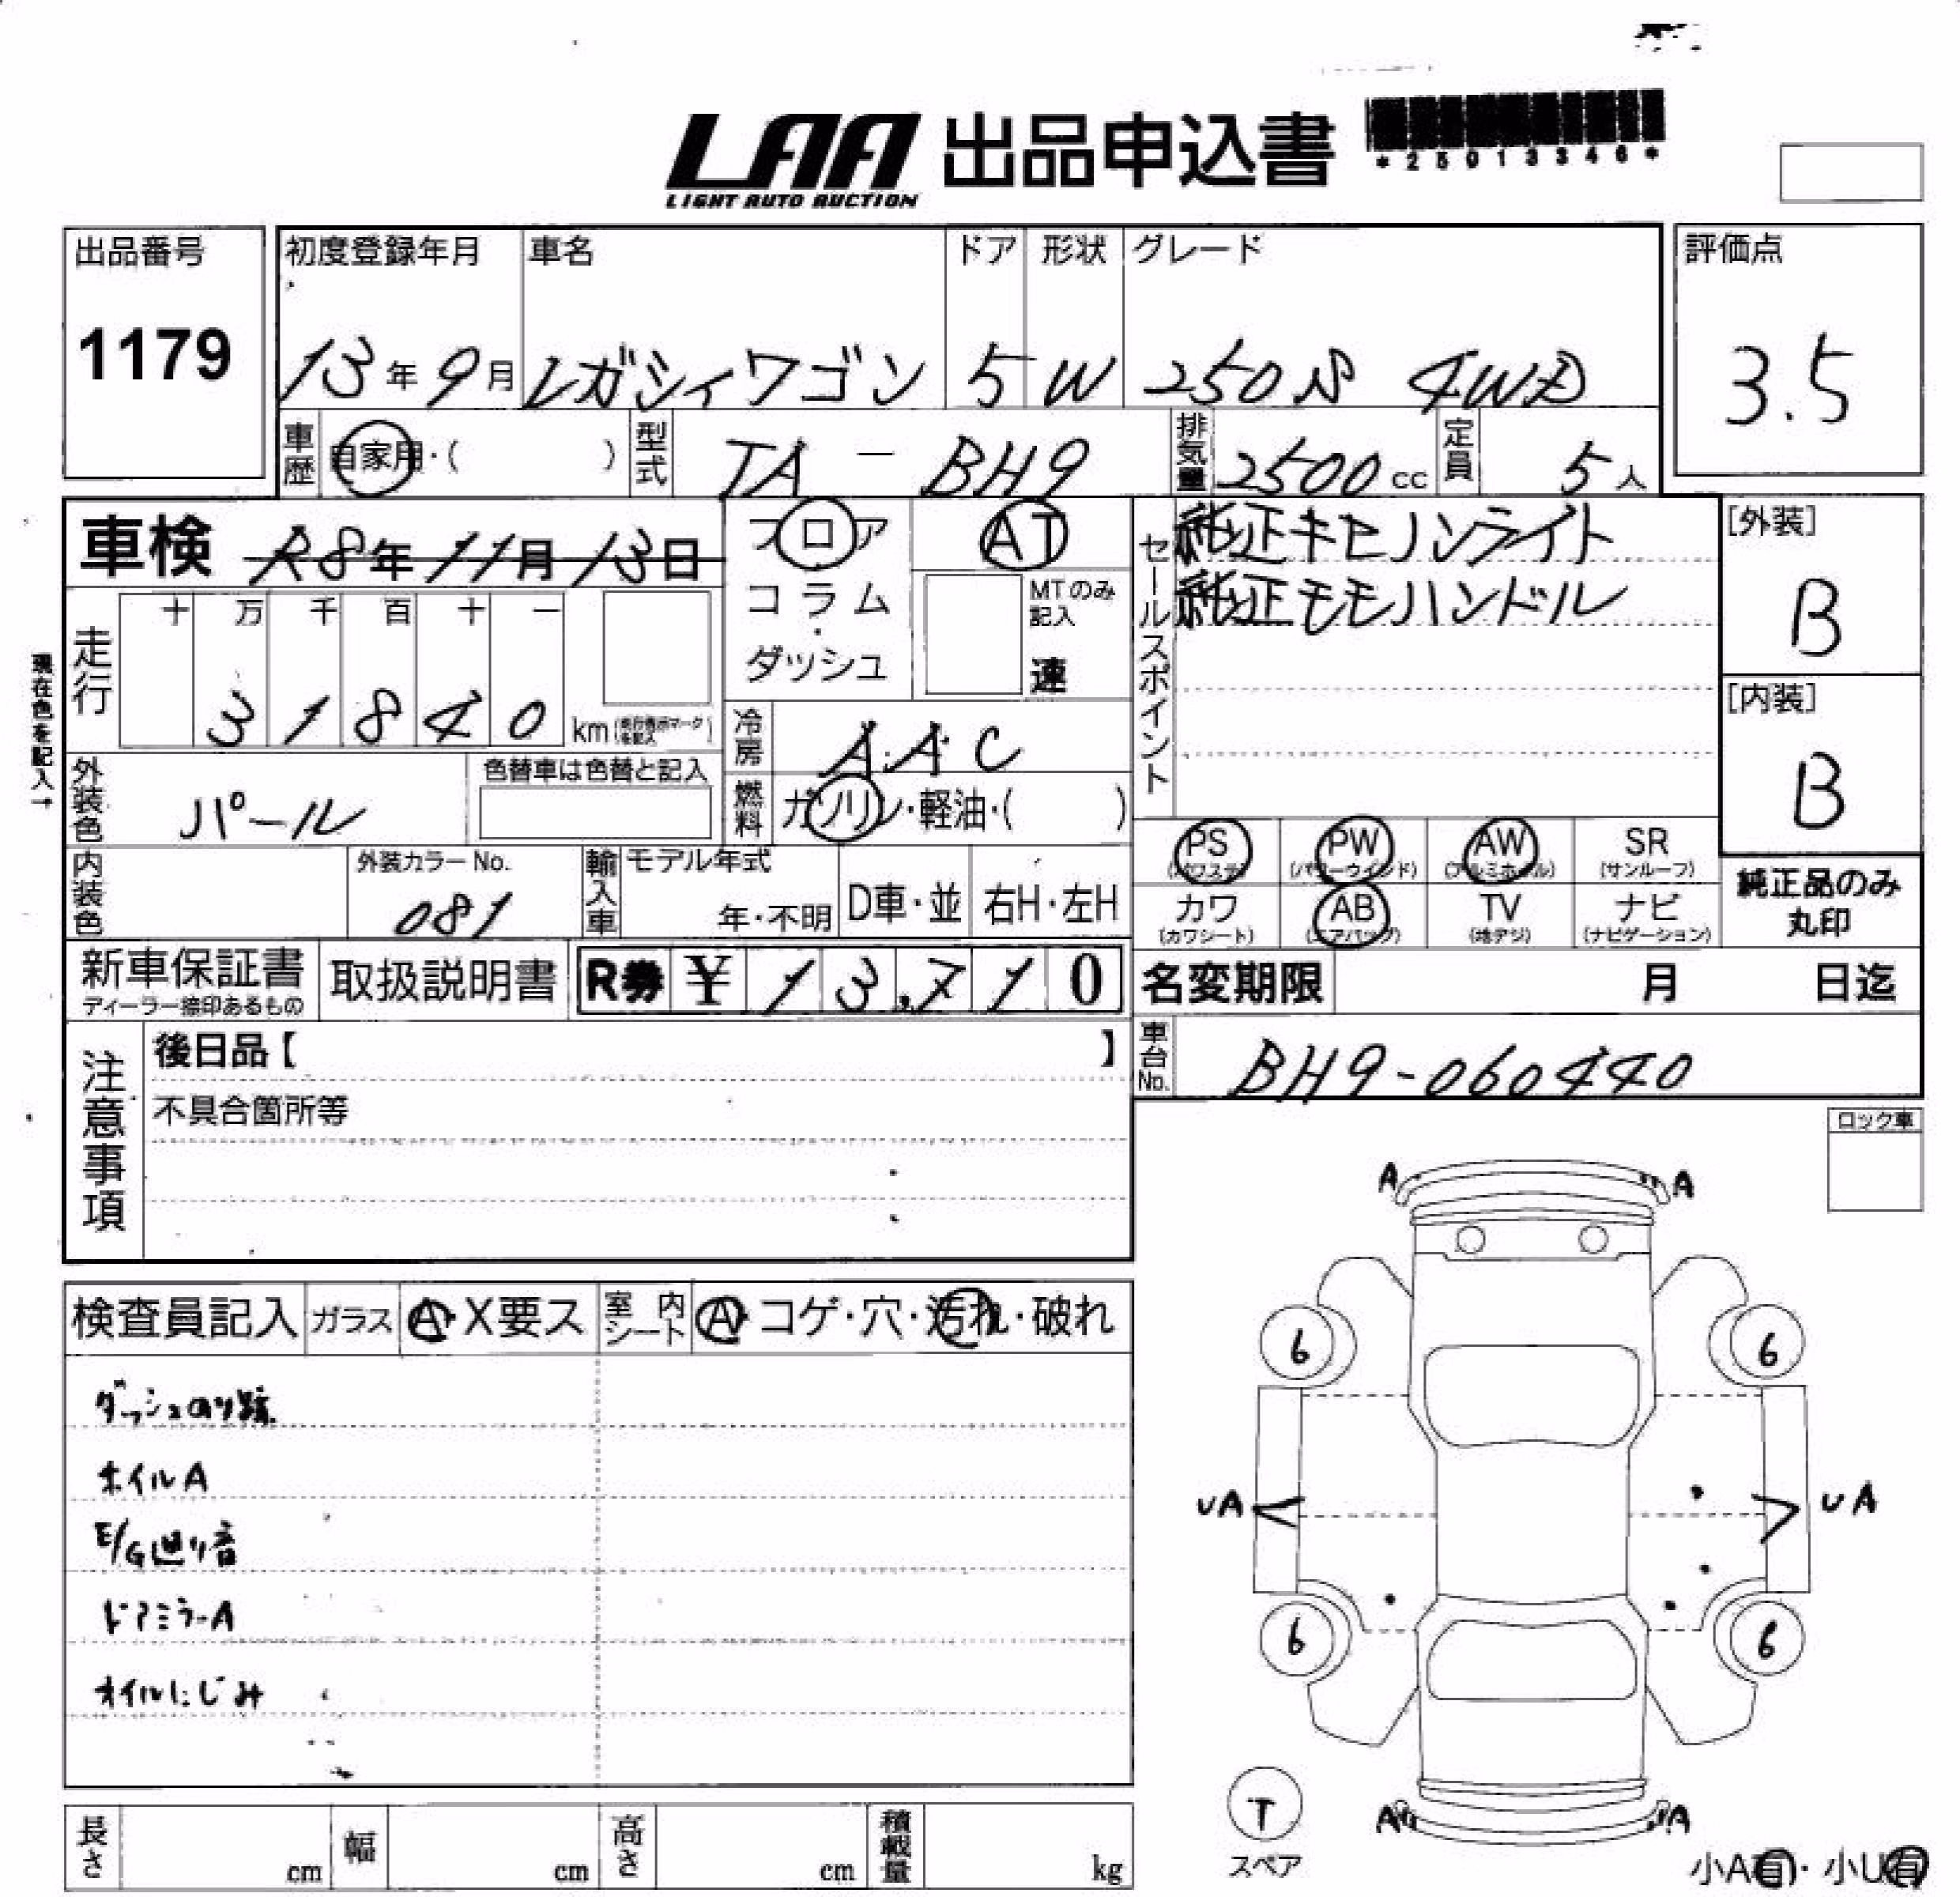 LAA 出品申込書
LIGHT AUTO AUCTION
*25013346*
出品番号 初度登録年月 車名 ドア 形状 グレード 評価点
1179 13年9月 レガシィワゴン 5 W 250S 4WD 3.5
車歴 自家用・( ) 型式 TA - BH9 排気量 2500cc 定員 5人
車検 R8年11月13日
フロア AT
コラム・ダッシュ
MTのみ記入
速
セールスポイント
純正キセノンライト
純正モモハンドル
[外装]
B
[内装]
B
走行 十 万 千 百 十 一
3 1 8 4 0 km (走行表示マークを記入)
現在色を記入→
冷房 AAC
外装色 パール 色替車は色替と記入
燃料 ガソリン・軽油・( )
PS (パワステ) PW (パワーウインド) AW (アルミホイル) SR (サンルーフ)
カワ (カワシート) AB (エアバッグ) TV (地デジ) ナビ (ナビゲーション)
純正品のみ丸印
内装色 外装カラーNo. 081 輸入車 モデル年式 年・不明 D車・並 右H・左H
新車保証書 ディーラー捺印あるもの 取扱説明書 R券 ¥ 13,710
名変期限 月 日迄
車台No. BH9-060440
注意事項
後日品【 】
不具合箇所等
ロック車
検査員記入 ガラス A・X要ス 室内シート A・コゲ・穴・汚れ・破れ
ダッシュのり跡
ホイルA
E/G廻り音
ドアミラーA
オイルにじみ
A A
6 6
UA UA
6 6
T
スペア
A A
小A有・小U有
長さ cm 幅 cm 高さ cm 積載量 kg